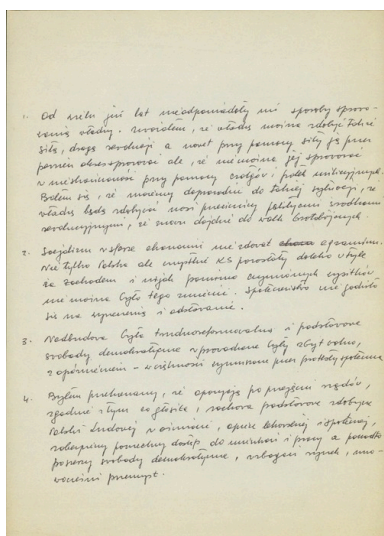 1. Od wielu już lat nieodpowiadały mi sposoby sprawo-
wania władzy. Uważałem, że władzę można zdobyć także
siłą, drogą rewolucji a nawet przy pomocy siły ją przez
pewien okres sprawować ale, że nie można jej sprawować
w nieskończoność przy pomocy czołgów i pałek milicyjnych.
Bałem się, że możemy doprowadzić do takiej sytuacji, że
władzę będą zdobywać nasi przeciwnicy polityczni środkami
rewolucyjnymi, że może dojść do walk bratobójczych.
2. Socjalizm w sferze ekonomii nie zdawał egzaminu.
Nie tylko Polska ale wszystkie KS pozostały daleko w tyle
za zachodem i mimo ogromnych wysiłków
nie można było tego zmienić. Społeczeństwo nie godziło
się na wyrzeczenia i odstawanie.
3. Nadbudowa była trudnoreformowalna a podstawowe
swobody demokratyczne wprowadzane były zbyt wolno,
z opóźnieniem – w większości wymuszone przez protesty społeczne
4. Byłem przekonany, że opozycja po przejęciu rządów,
zgodnie z tym co głosiła, zachowa podstawowe zdobycze
Polski Ludowej w oświacie, opiece lekarskiej i społecznej,
zabezpieczy powszechny dostęp do mieszkań i pracy a ponadto
poszerzy swobody demokratyczne, wzbogaci rynek, uno-
wocześni przemysł.